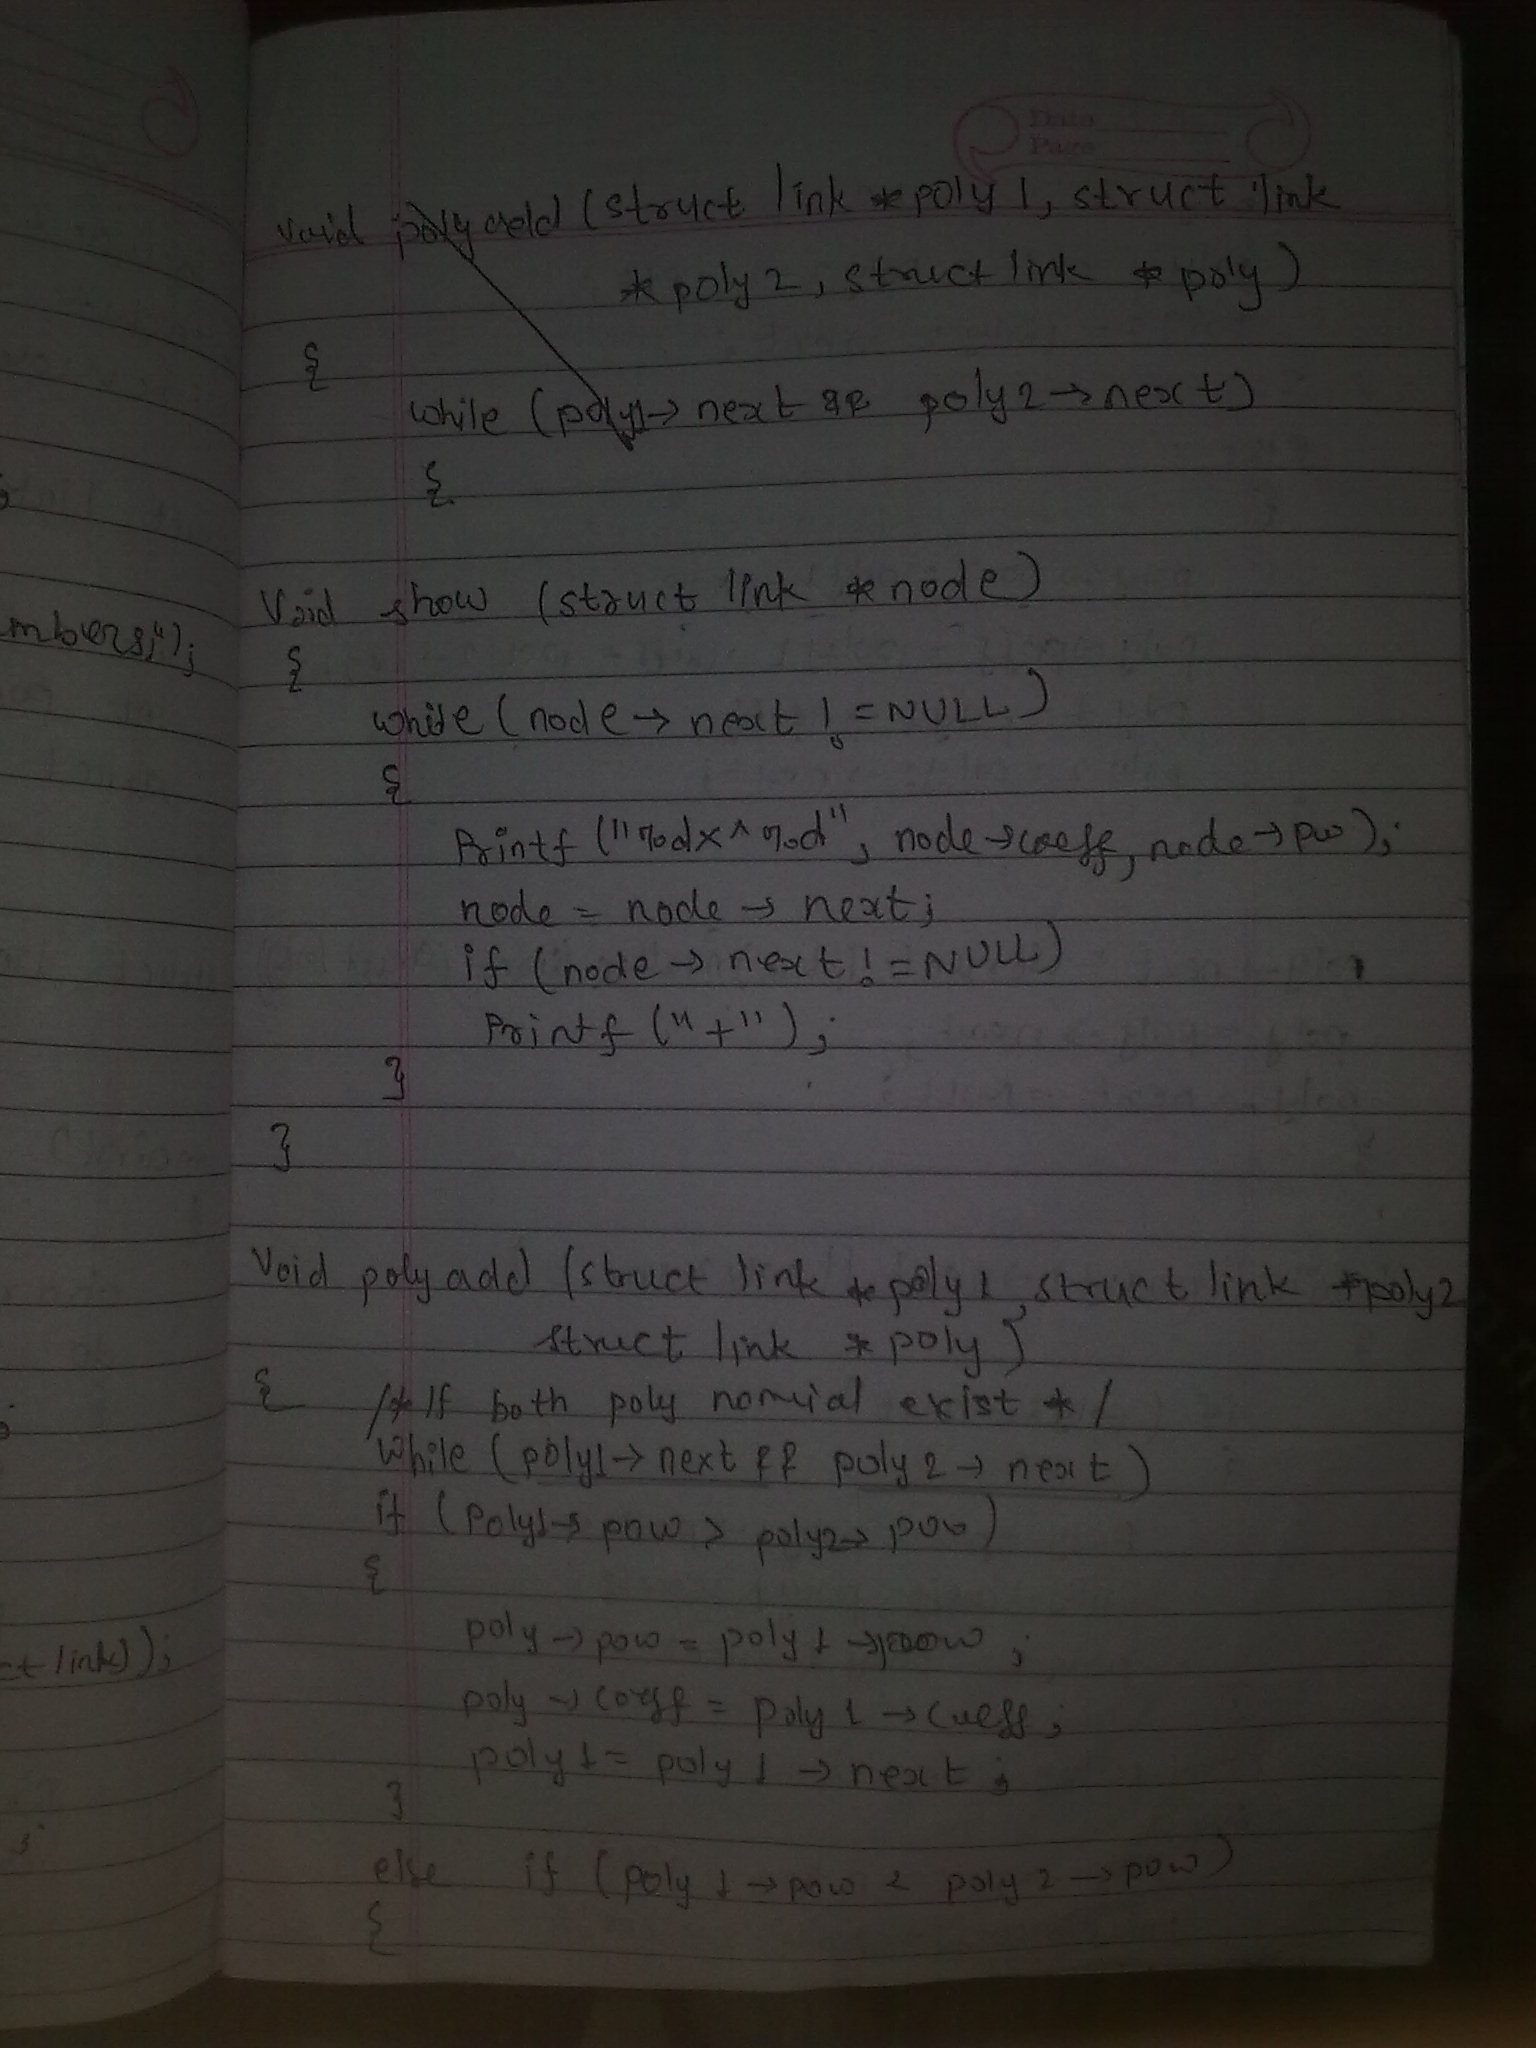 Date
Page
void polyadd (struct link *poly 1, struct link
*poly 2, struct link *poly)
{
while (poly1→ next && poly 2→next)
{
Void show (struct link *node)
{
while (node → next != NULL)
{
Printf ("%dx^%d", node→coeff, node→pw);
node = node → next;
if (node → next != NULL)
Printf ("+");
}
}
Void polyadd (struct link *poly 1, struct link *poly2
struct link *poly)
{ /* If both poly nomial exist */
while (poly1→ next && poly 2 → next)
if (Poly1→ pow > poly2→ pow)
{
poly → pow = poly 1 → pow ;
poly → coeff = Poly 1 → coeff;
poly 1 = poly 1 → next ;
}
else if (poly 1 → pow < poly 2 → pow)
{
mbers;");
ct link));